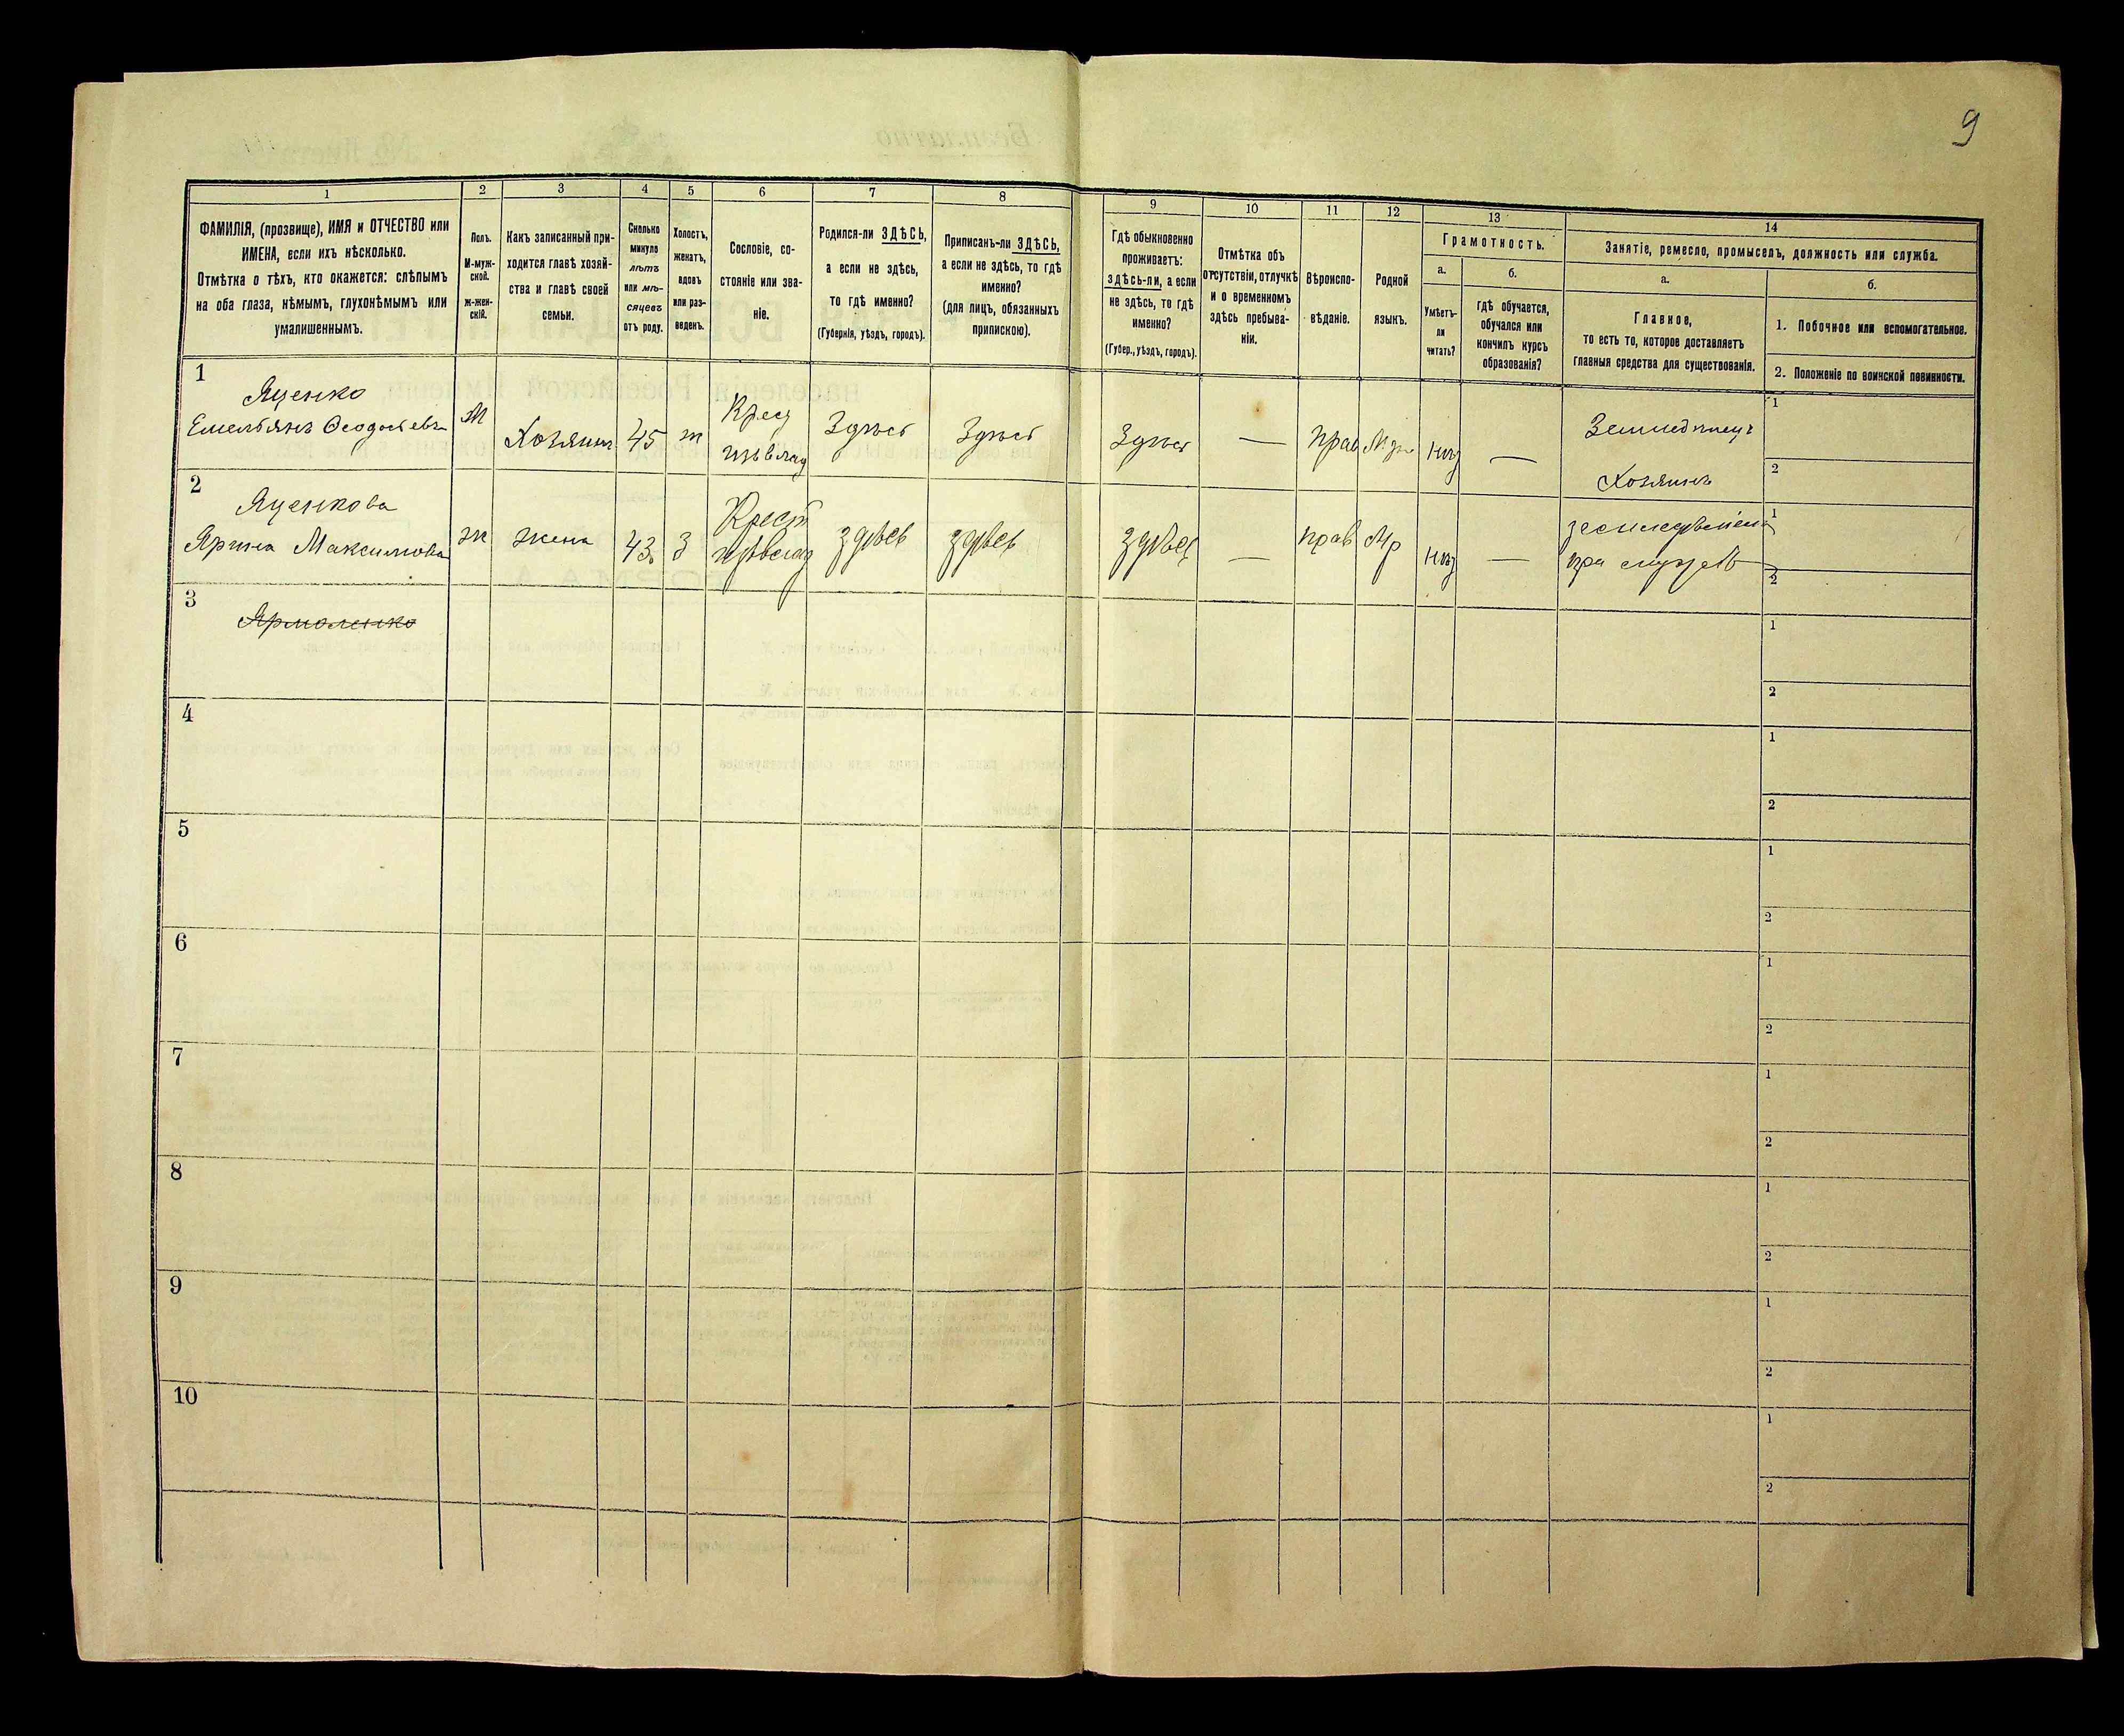 9
1
2
3
4
5
6
7
8
ФАМИЛІЯ, (прозвище), ИМЯ и ОТЧЕСТВО или
ИМЕНА, если ихъ нѣсколько.
Отмѣтка о тѣхъ, кто окажется: слѣпымъ
на оба глаза, нѣмымъ, глухонѣмымъ или
умалишеннымъ.
Полъ.
М-муж-
ской.
ж-жен-
скій.
Какъ записанный при-
ходится главѣ хозяй-
ства и главѣ своей
семьи.
Сколько
минуло
лѣтъ
или мѣ-
сяцевъ
отъ роду.
Холостъ,
женатъ,
вдовъ
или раз-
веденъ.
Сословіе, со-
стояніе или зва-
ніе.
Родился-ли ЗДѢСЬ,
а если не здѣсь,
то гдѣ именно?
(Губернія, уѣздъ, городъ).
Приписанъ-ли ЗДѢСЬ,
а если не здѣсь, то гдѣ
именно?
(для лицъ, обязанныхъ
припискою).
9
10
11
12
13
14
Гдѣ обыкновенно
проживаетъ:
ЗДѢСЬ-ЛИ, а если
не здѣсь, то гдѣ
именно?
(Губер., уѣздъ, городъ).
Отмѣтка объ
отсутствіи, отлучкѣ
и о временномъ
здѣсь пребыва-
ніи.
Вѣроиспо-
вѣданіе.
Родной
языкъ.
Грамотность.
а.
Умѣетъ-
ли
читать?
б.
Гдѣ обучается,
обучался или
кончилъ курсъ
образованія?
Занятіе, ремесло, промыселъ, должность или служба.
а.
Главное,
то есть то, которое доставляетъ
главныя средства для существованія.
б.
1. Побочное или вспомогательное.
2. Положеніе по воинской повинности.
1
Яценко
Емельянъ Ѳеодосіевъ
М
Хозяинъ
45
ж
Крест
Здѣсь
Здѣсь
Здѣсь
—
прав
нѣт
—
Земледѣлецъ
Хозяинъ
1
2
2
Яценкова
Ярина Максимова
ж
жена
43
З
Крест
здѣсь
здѣсь
здѣсь
—
прав
Мр
нѣт
—
при мужѣ
1
2
3
Ярмоленко
1
2
4
1
2
5
1
2
6
1
2
7
1
2
8
1
2
9
1
2
10
1
2